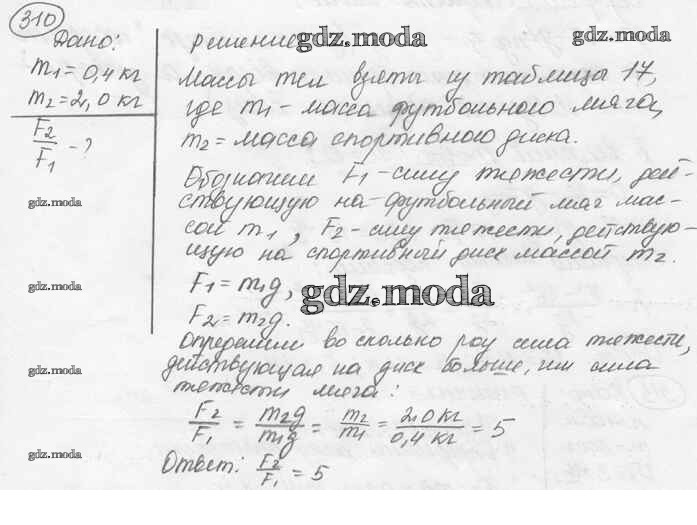 310
Дано:
m₁ = 0,4 кг
m₂ = 2,0 кг
F₂/F₁ - ?
решение
gdz.moda
gdz.moda
Массы тел взяты из таблицы 17,
где m₁ - масса футбольного мяча,
m₂ = масса спортивного диска.
Обозначим F₁ - силу тяжести, дей-
ствующую на футбольный мяч мас-
сой m₁, F₂ - силу тяжести, действую-
щую на спортивный диск массой m₂.
gdz.moda
F₁ = m₁g,
F₂ = m₂g.
gdz.moda
gdz.moda
gdz.moda
Определим во сколько раз сила тяжести,
действующая на диск больше, чем сила
тяжести мяча:
gdz.moda
gdz.moda
F₂/F₁ = m₂g/m₁g = m₂/m₁ = 2,0 кг/0,4 кг = 5
gdz.moda
gdz.moda
Ответ: F₂/F₁ = 5